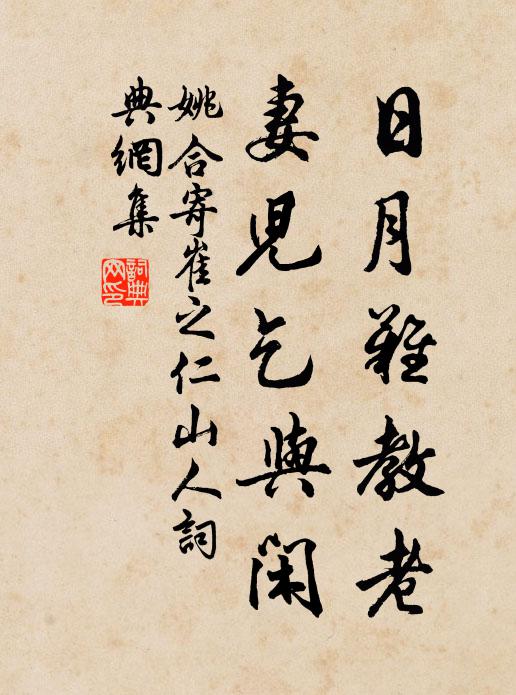 日月難教老
妻児乞與閑
姚合寄崔之仁山人詞
典網集
詞典
网印